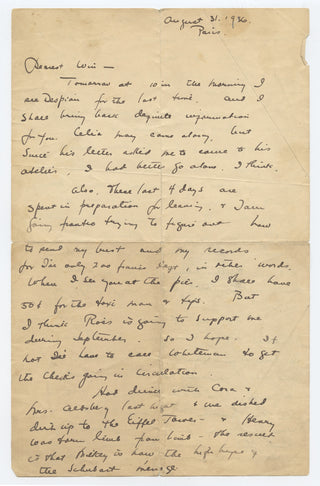 August 31, 1936.
Paris.
Dearest Win —
Tomorrow at 10 in the morning I
see Despiau for the last time. and I
shall bring back definite information
for you. Celia may come along, but
since his letter asked me to come to his
atelier, I had better go alone, I think.
Also, these last 4 days are
spent in preparation for leaving, & I am
going frantic trying to figure out how
to send my bust and my records
for I've only 200 francs left, in other words.
When I see you at the pier, I shall have
50¢ for the taxi man & tips. But
I think Ross is going to support me
during September. So I hope. If
not I'll have to call Whiteman to get
the checks going in circulation.
Had dinner with Cora &
Mrs. last night & we dished
dirt up to the Eiffel Tower — & Henry
was torn limb from limb — the result
is that is now the high hope of
the Schubart menage